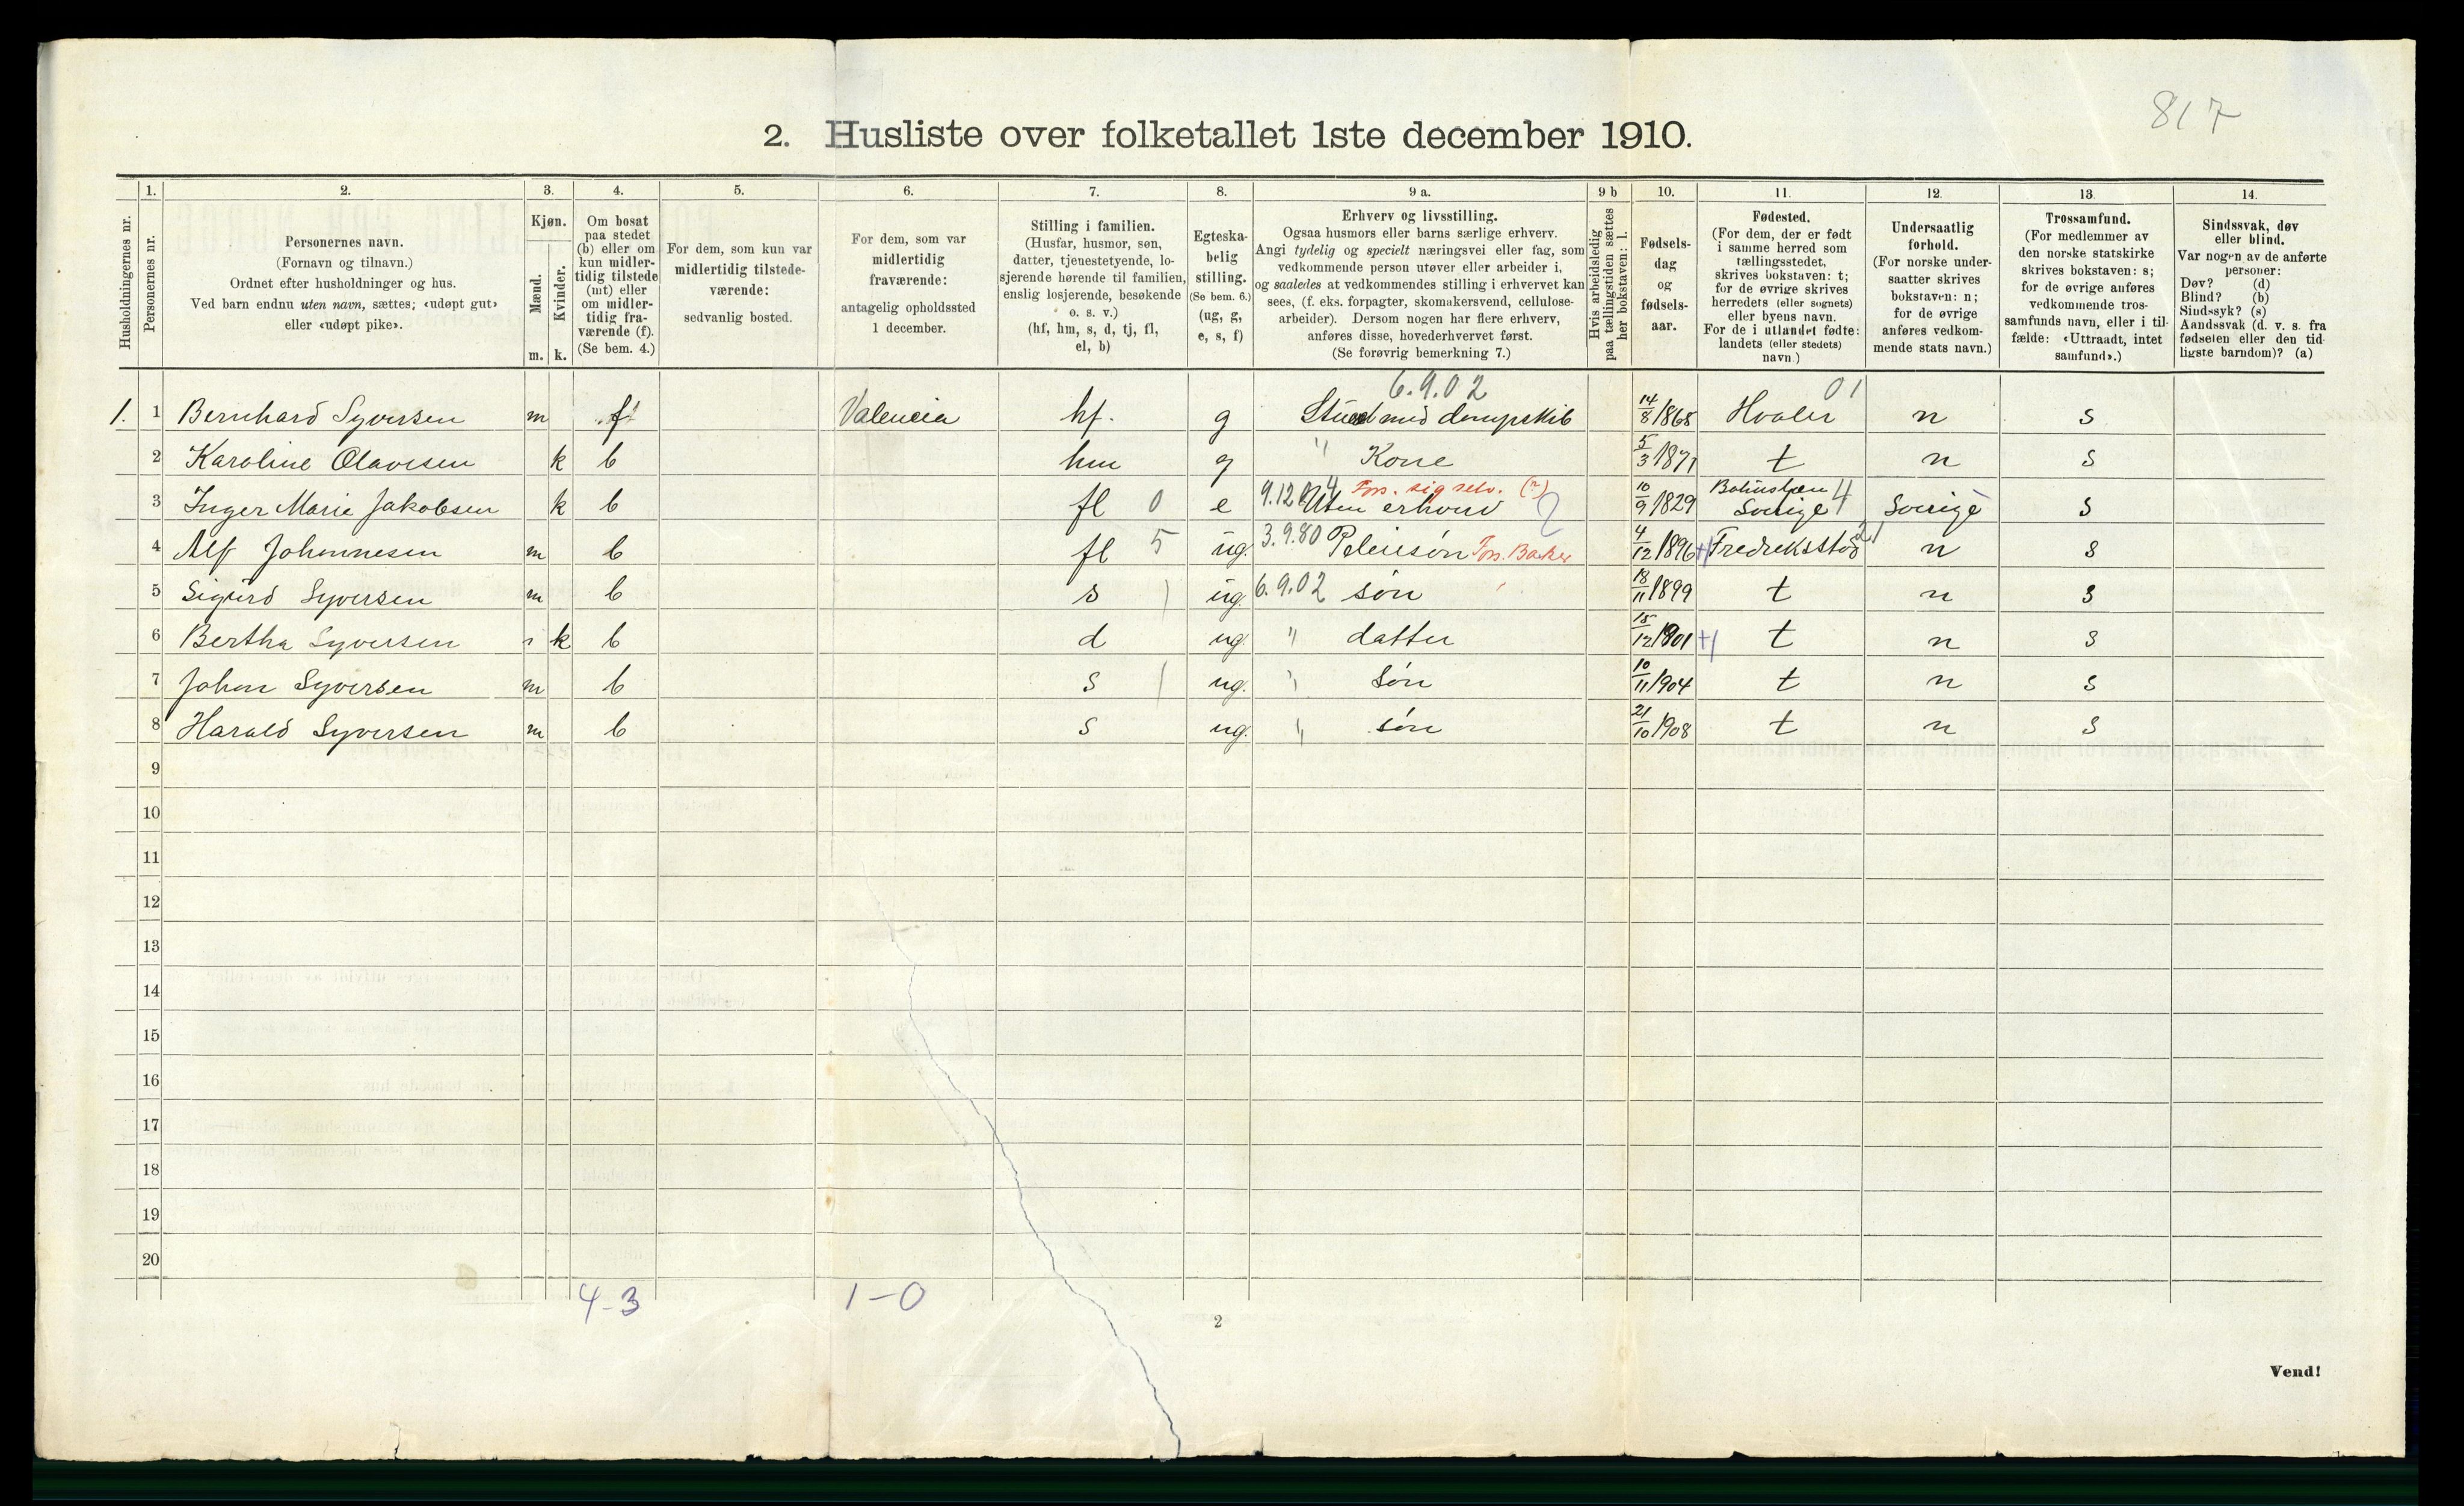 817
2. Husliste over folketallet 1ste december 1910.
Husholdningernes nr.
1.
Personernes nr.
2.
Personernes navn.
(Fornavn og tilnavn.)
Ordnet efter husholdninger og hus.
Ved barn endnu uten navn, sættes; «udøpt gut»
eller «udøpt pike».
3.
Kjøn.
Mænd.
Kvinder.
m. k.
4.
Om bosat
paa stedet
(b) eller om
kun midler-
tidig tilstede
(mt) eller
om midler-
tidig fra-
værende (f).
(Se bem. 4.)
5.
For dem, som kun var
midlertidig tilstede-
værende:
sedvanlig bosted.
6.
For dem, som var
midlertidig
fraværende:
antagelig opholdssted
1 december.
7.
Stilling i familien.
(Husfar, husmor, søn,
datter, tjenestetyende, lo-
sjerende hørende til familien,
enslig losjerende, besøkende
o. s. v.)
(hf, hm, s, d, tj, fl,
el, b)
8.
Egteska-
belig
stilling.
(Se bem. 6.)
(ug, g,
e, s, f)
9 a.
Erhverv og livsstilling.
Ogsaa husmors eller barns særlige erhverv.
Angi tydelig og specielt næringsvei eller fag, som
vedkommende person utøver eller arbeider i,
og saaledes at vedkommendes stilling i erhvervet kan
sees, (f. eks. forpagter, skomakersvend, cellulose-
arbeider). Dersom nogen har flere erhverv,
anføres disse, hovederhvervet først.
(Se forøvrig bemerkning 7.)
9 b
Hvis arbeidsledig
paa tællingstiden sættes
her bokstaven: l.
10.
Fødsels-
dag
og
fødsels-
aar.
11.
Fødested.
(For dem, der er født
i samme herred som
tællingsstedet,
skrives bokstaven: t;
for de øvrige skrives
herredets (eller sognets)
eller byens navn.
For de i utlandet fødte:
landets (eller stedets)
navn.)
12.
Undersaatlig
forhold.
(For norske under-
saatter skrives
bokstaven: n;
for de øvrige
anføres vedkom-
mende stats navn.)
13.
Trossamfund.
(For medlemmer av
den norske statskirke
skrives bokstaven: s;
for de øvrige anføres
vedkommende tros-
samfunds navn, eller i til-
fælde: «Uttraadt, intet
samfund».)
14.
Sindssvak, døv
eller blind.
Var nogen av de anførte
personer:
Døv? (d)
Blind? (b)
Sindssyk? (s)
Aandssvak (d. v. s. fra
fødselen eller den tid-
ligste barndom)? (a)
6.9.02 01
1. 1 Bernhard Syversen m f Valencia hf. g med dampskib 14/8 1868 Hvaler n s
2 Karoline Olavesen k b hm g " Kone 5/3 1871 t n s
Fors. sig selv. (?) Bohuslæn 4
3 Inger Marie Jakobsen k b fl 0 e 9.12 Uten erhverv 2 10/9 1829 Sverige Sverige s
4 Alf Johannesen m b fl 5 ug. 3.9.80 Pleiesøn Fors. Baker 4/12 1896 Fredriksstad 21 n s
5 Sigurd Syversen m b s ug. 6.9.02 søn 18/11 1899 t n s
6 Bertha Syversen k b d ug. " datter 15/12 1901 t n s
7 Johan Syversen m b s ug. " søn 10/11 1904 t n s
8 Harald Syversen m b s ug. " søn 21/10 1908 t n s
9
10
11
12
13
14
15
16
17
18
19
20
4-3 1-0
2
Vend!